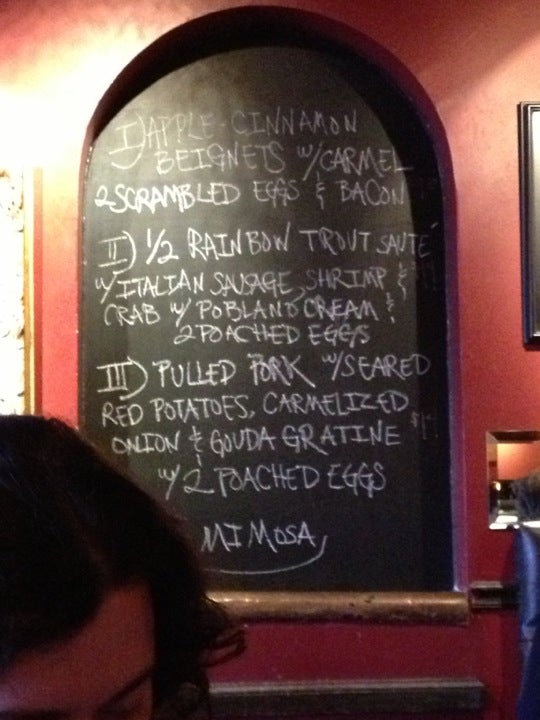 I) APPLE-CINNAMON
BEIGNETS W/CARMEL
2 SCRAMBLED EGGS & BACON
II) 1/2 RAINBOW TROUT SAUTÉ
W/ITALIAN SAUSAGE, SHRIMP &
CRAB W/ POBLANO CREAM &
2 POACHED EGGS
III) PULLED PORK W/SEARED
RED POTATOES, CARMELIZED
ONION & GOUDA GRATINE
W/ 2 POACHED EGGS
MIMOSA